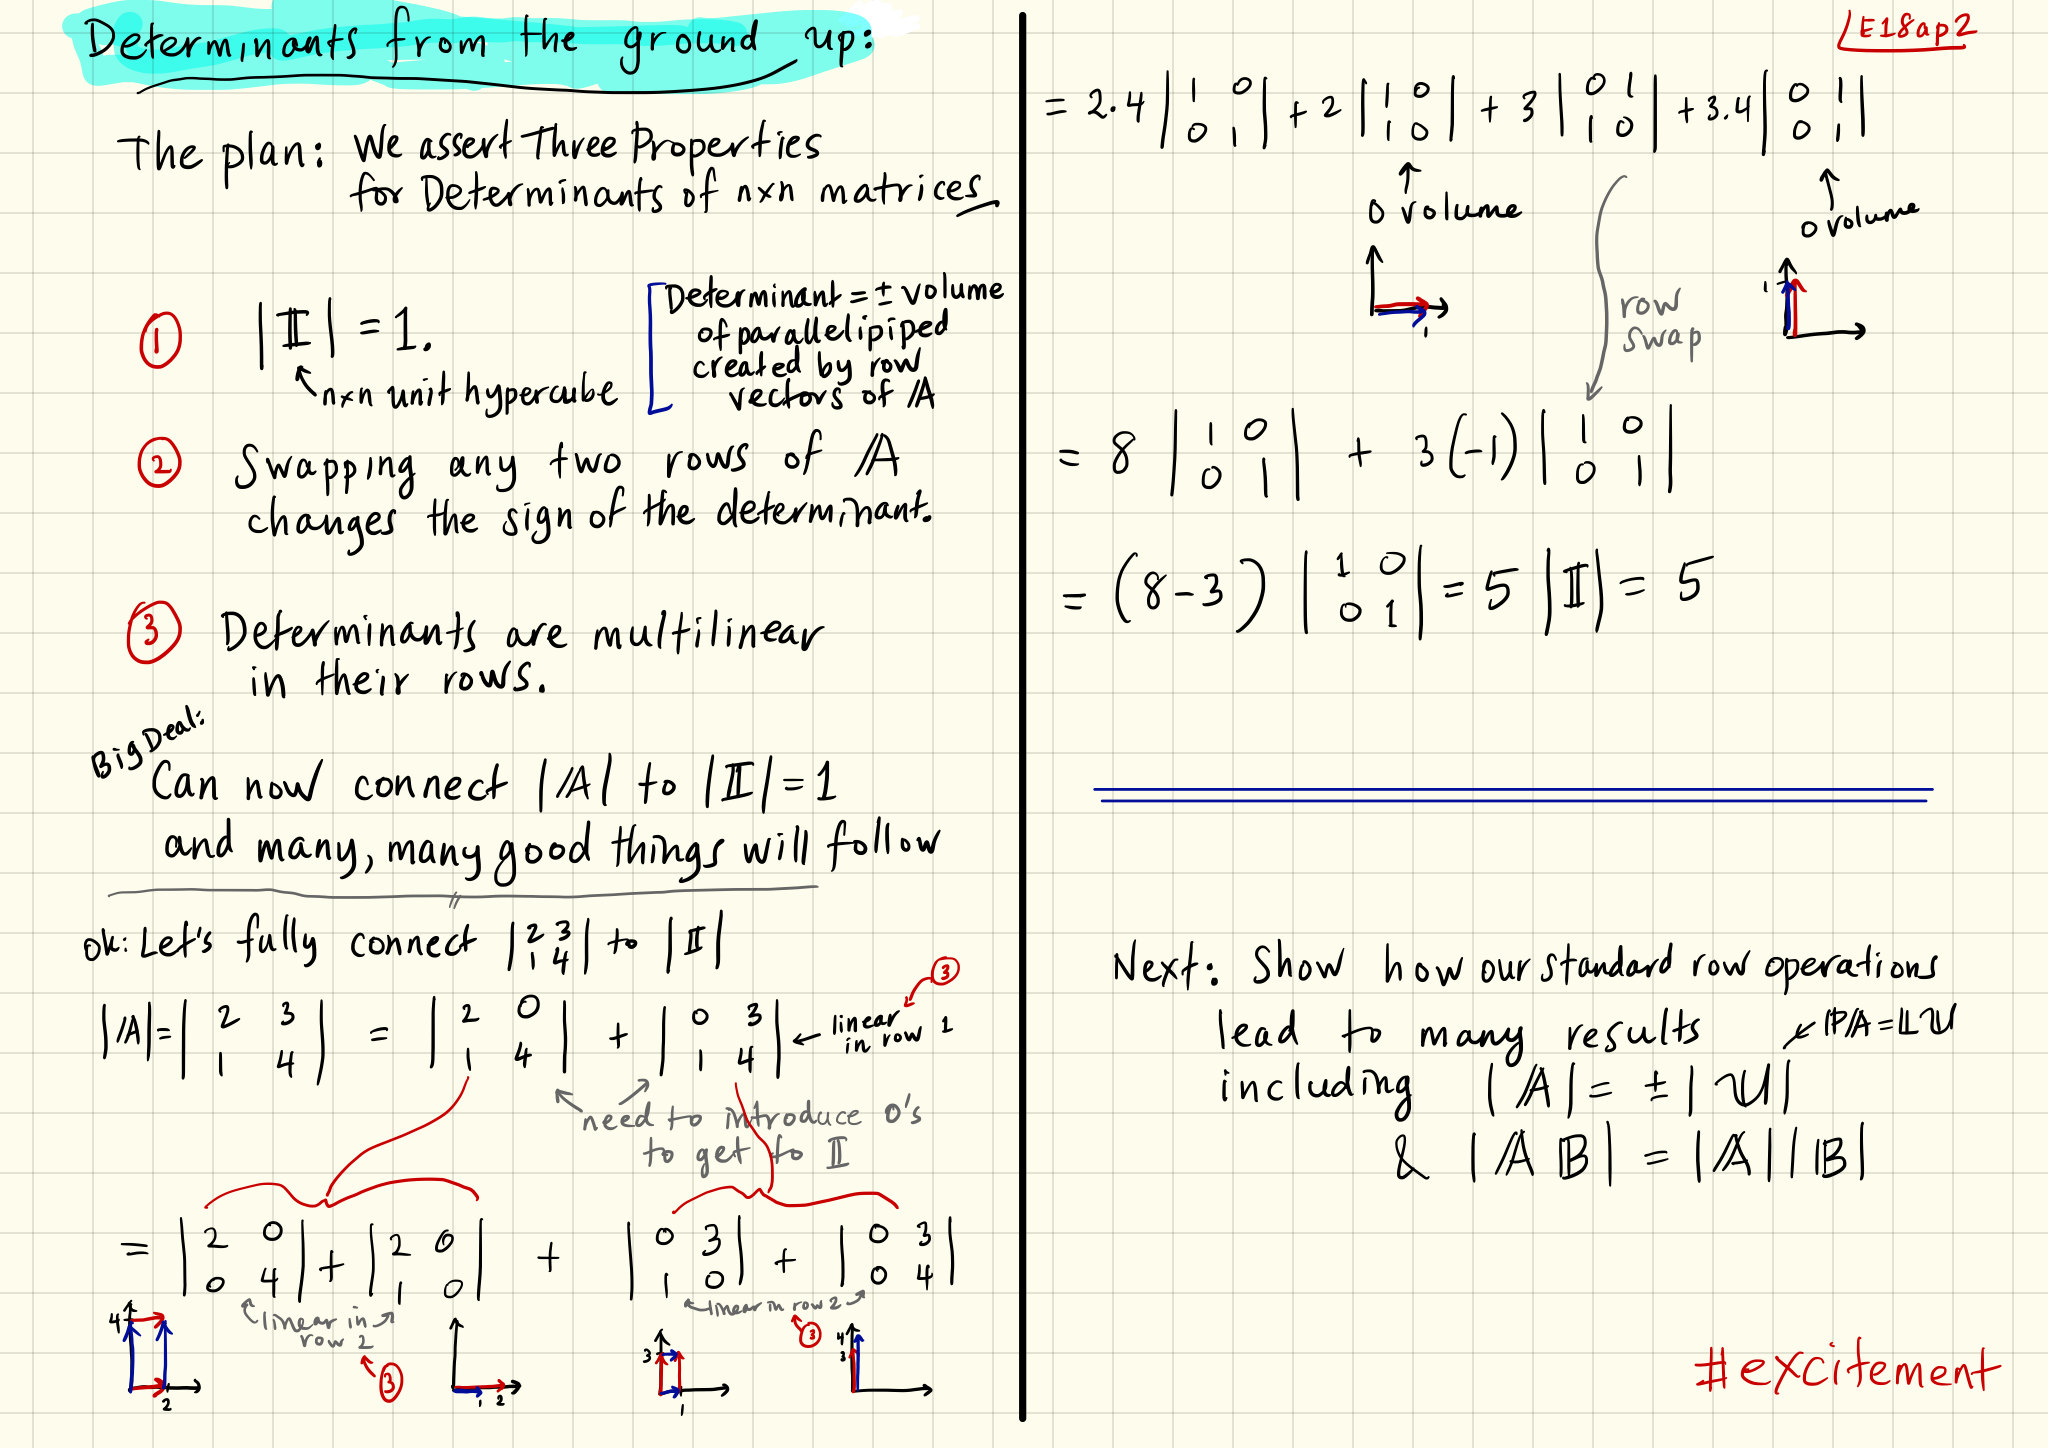 Determinants from the ground up:
The plan: We assert Three Properties
for Determinants of n×n matrices
① |𝕀| = 1.
n×n unit hypercube
Determinant = ± volume
of parallelipiped
created by row
vectors of 𝔸
② Swapping any two rows of 𝔸
changes the sign of the determinant.
③ Determinants are multilinear
in their rows.
Big Deal:
Can now connect |𝔸| to |𝕀| = 1
and many, many good things will follow
ok: Let's fully connect |2 3; 1 4| to |𝕀|
|𝔸| = |2 3; 1 4| = |2 0; 1 4| + |0 3; 1 4| ← linear in row 1 ③
need to introduce 0's
to get to 𝕀
= |2 0; 0 4| + |2 0; 1 0| + |0 3; 1 0| + |0 3; 0 4|
linear in
row 2
③
linear in row 2
③
4 2
1 2
3 1
4 3
E18ap2
= 2.4 |1 0; 0 1| + 2 |1 0; 1 0| + 3 |0 1; 1 0| + 3.4 |0 1; 0 1|
0 volume
1
row
swap
0 volume
1
= 8 |1 0; 0 1| + 3(-1) |1 0; 0 1|
= (8-3) |1 0; 0 1| = 5 |𝕀| = 5
Next: Show how our standard row operations
lead to many results
ℙ𝔸 = 𝕃𝕌
including |𝔸| = ± |𝕌|
& |𝔸 𝔹| = |𝔸| |𝔹|
#excitement